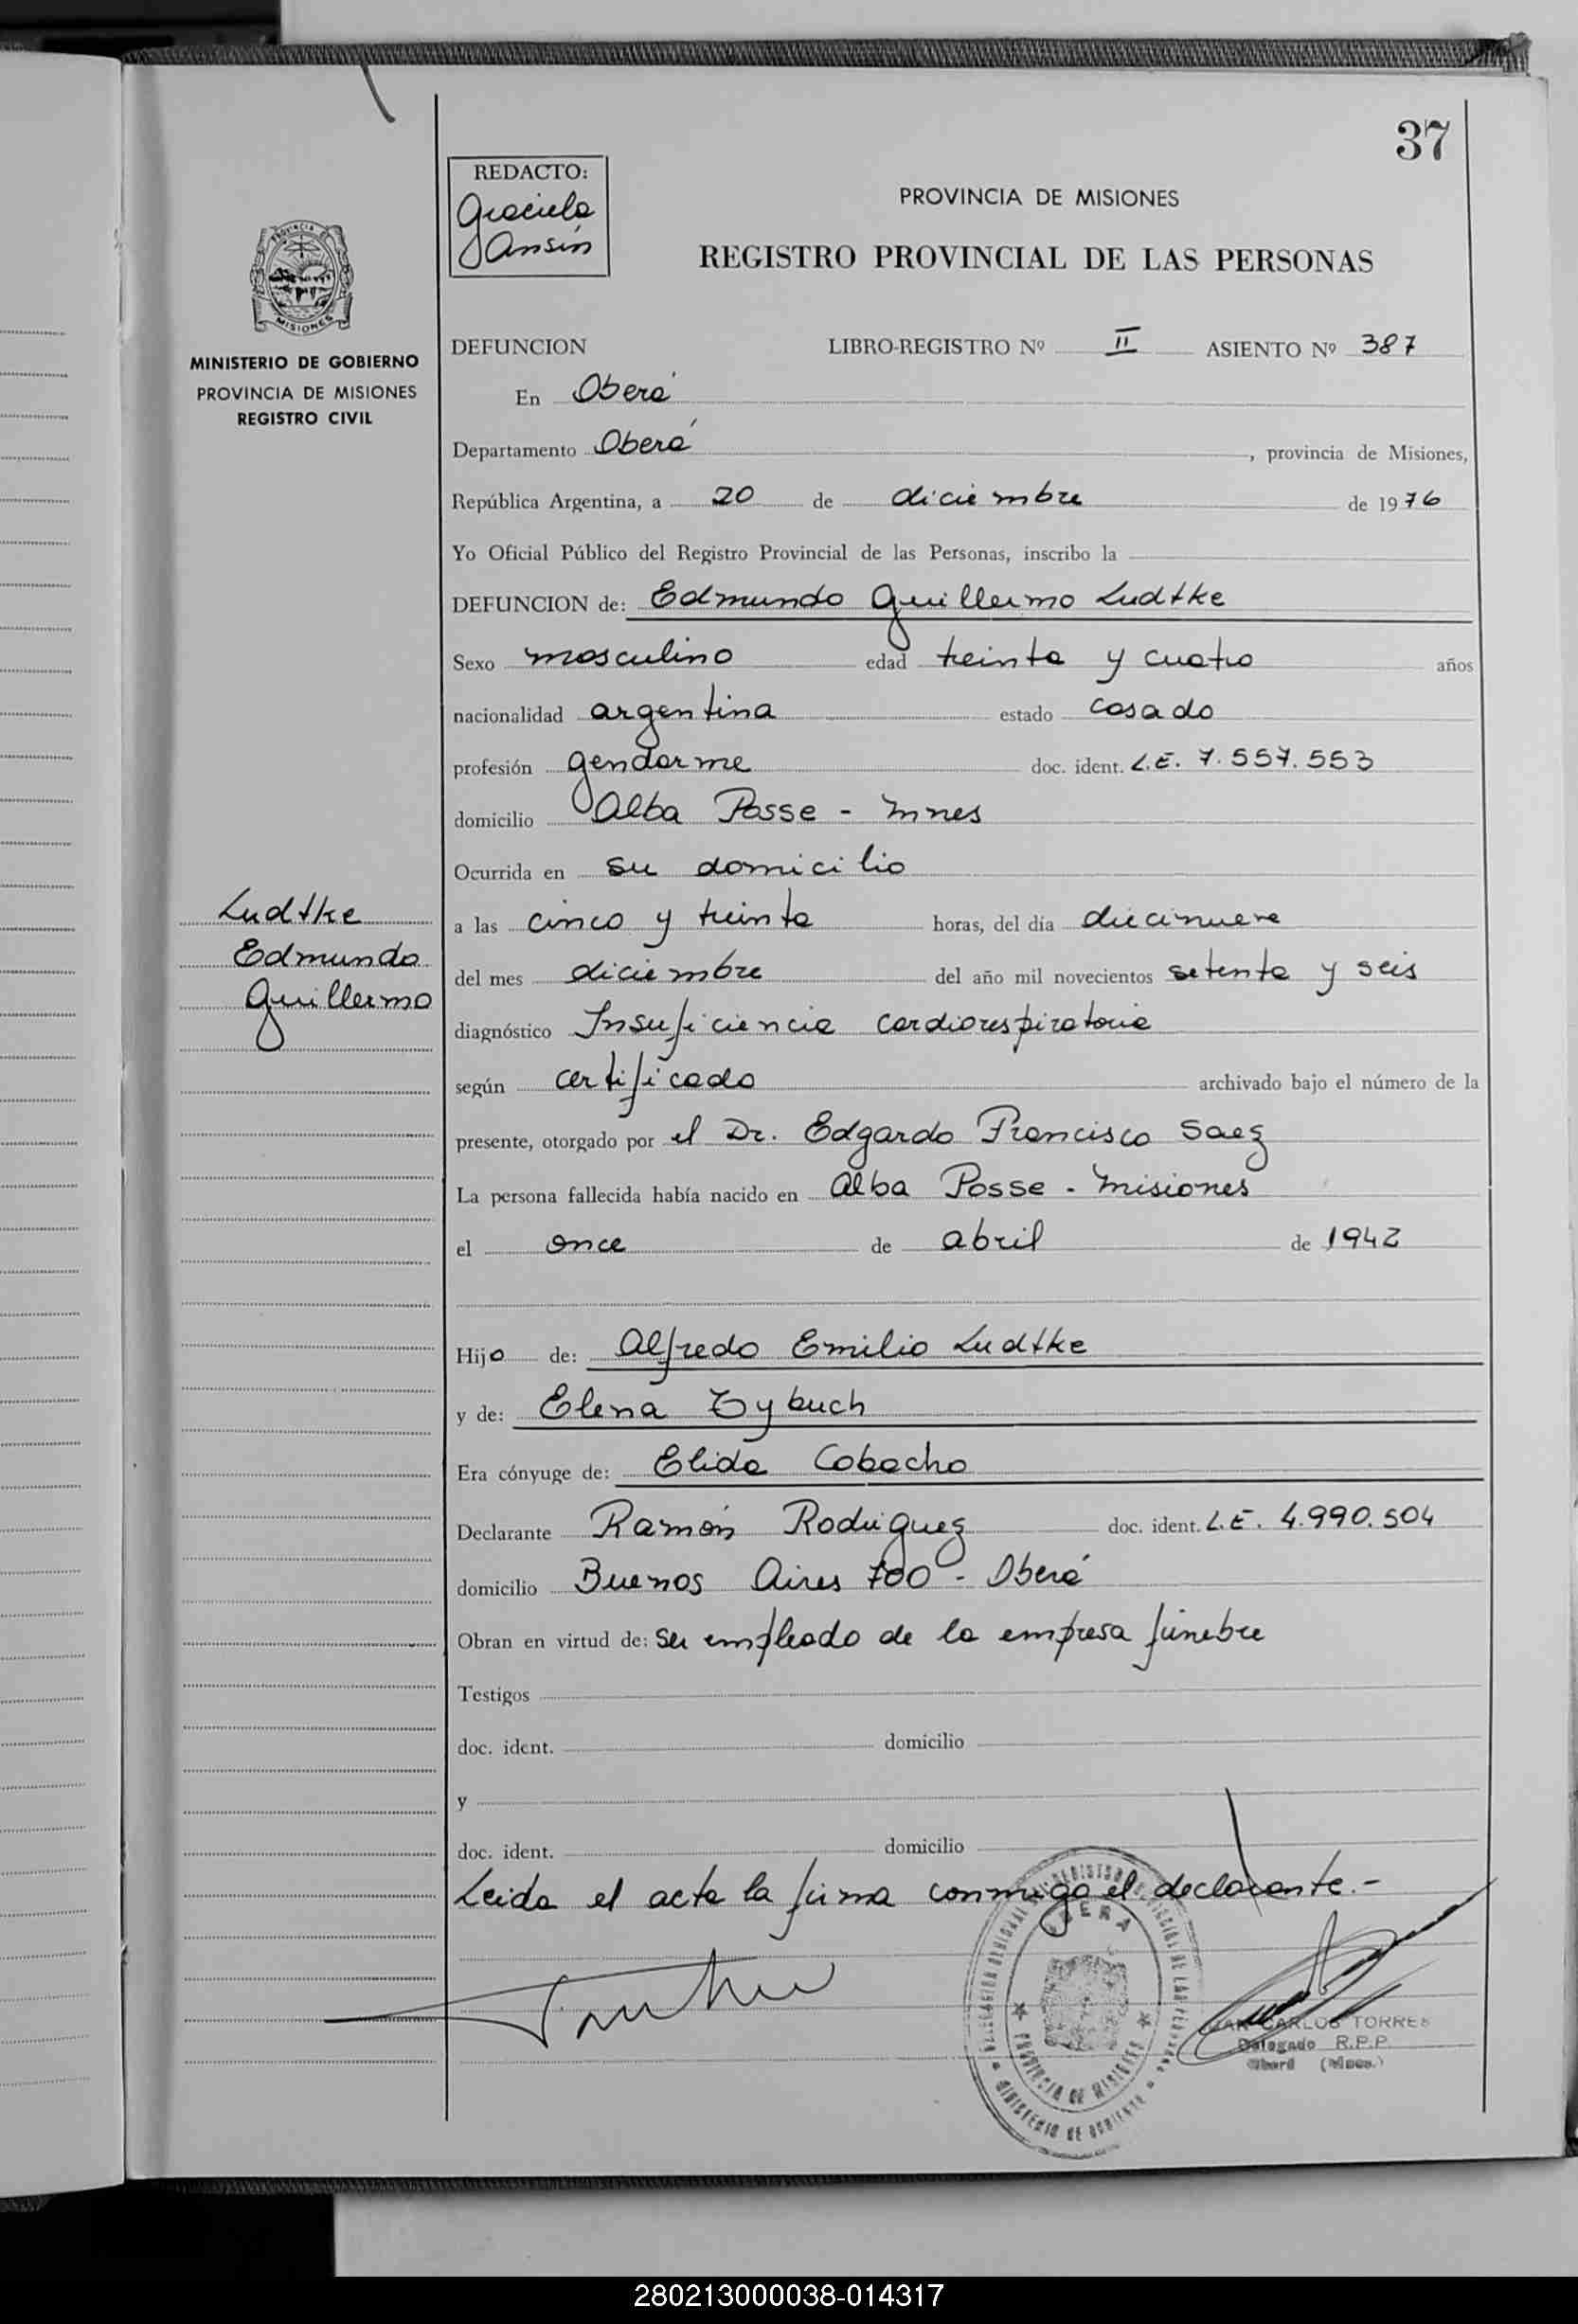 37
REDACTO:
Graciela
Ansin
PROVINCIA DE MISIONES
REGISTRO PROVINCIAL DE LAS PERSONAS
PROVINCIA DE
MISIONES
MINISTERIO DE GOBIERNO
PROVINCIA DE MISIONES
REGISTRO CIVIL
DEFUNCION LIBRO-REGISTRO Nº II ASIENTO Nº 387
En Oberá
Departamento Oberá, provincia de Misiones,
República Argentina, a 20 de diciembre de 1976
Yo Oficial Público del Registro Provincial de las Personas, inscribo la
DEFUNCION de: Edmundo Guillermo Ludtke
Sexo masculino edad treinta y cuatro años
nacionalidad argentina estado casado
profesión gendarme doc. ident. L.E. 7.557.553
domicilio Alba Posse - Mnes
Ocurrida en su domicilio
Ludtke
Edmundo
Guillermo
a las cinco y treinta horas, del día diecinueve
del mes diciembre del año mil novecientos setenta y seis
diagnóstico Insuficiencia cardiorespiratoria
según certificado archivado bajo el número de la
presente, otorgado por el Dr. Edgardo Francisco Saez
La persona fallecida había nacido en Alba Posse - Misiones
el once de abril de 1942
Hijo de: Alfredo Emilio Ludtke
y de: Elena Tybuch
Era cónyuge de: Elida Cobacho
Declarante Ramón Rodriguez doc. ident. L.E. 4.990.504
domicilio Buenos Aires 700 - Oberá
Obran en virtud de: ser empleado de la empresa fúnebre
Testigos
doc. ident. domicilio
y
doc. ident. domicilio
Leida el acta la firma conmigo el declarante.-
OBERA
PROVINCIA DE MISIONES
MINISTERIO DE GOBIERNO
CARLOS TORRES
Delegado R.P.P.
Oberá (Mnes.)
280213000038-014317